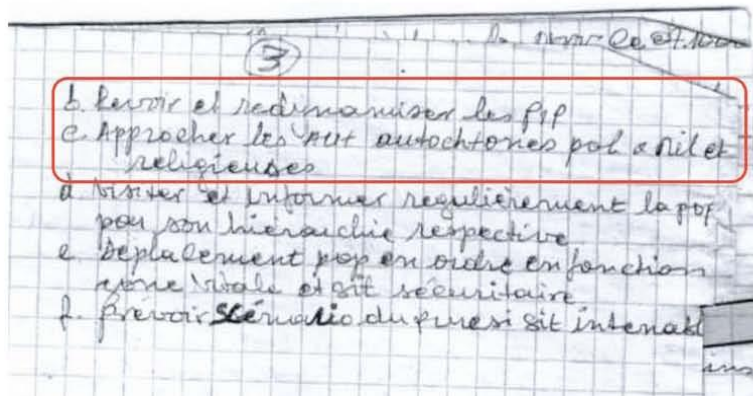 3
b. Revoir et redinamiser les PIP
c. Approcher les Aut autochtones pol a mil et
religieuses
d. Visiter et informer regulièrement la pop
par son hiérarchie respective
e. Deplacement pop en ordre en fonction
zone vitale et sit sécuritaire
f. Prévoir scénario du pire si sit intenabl
ins